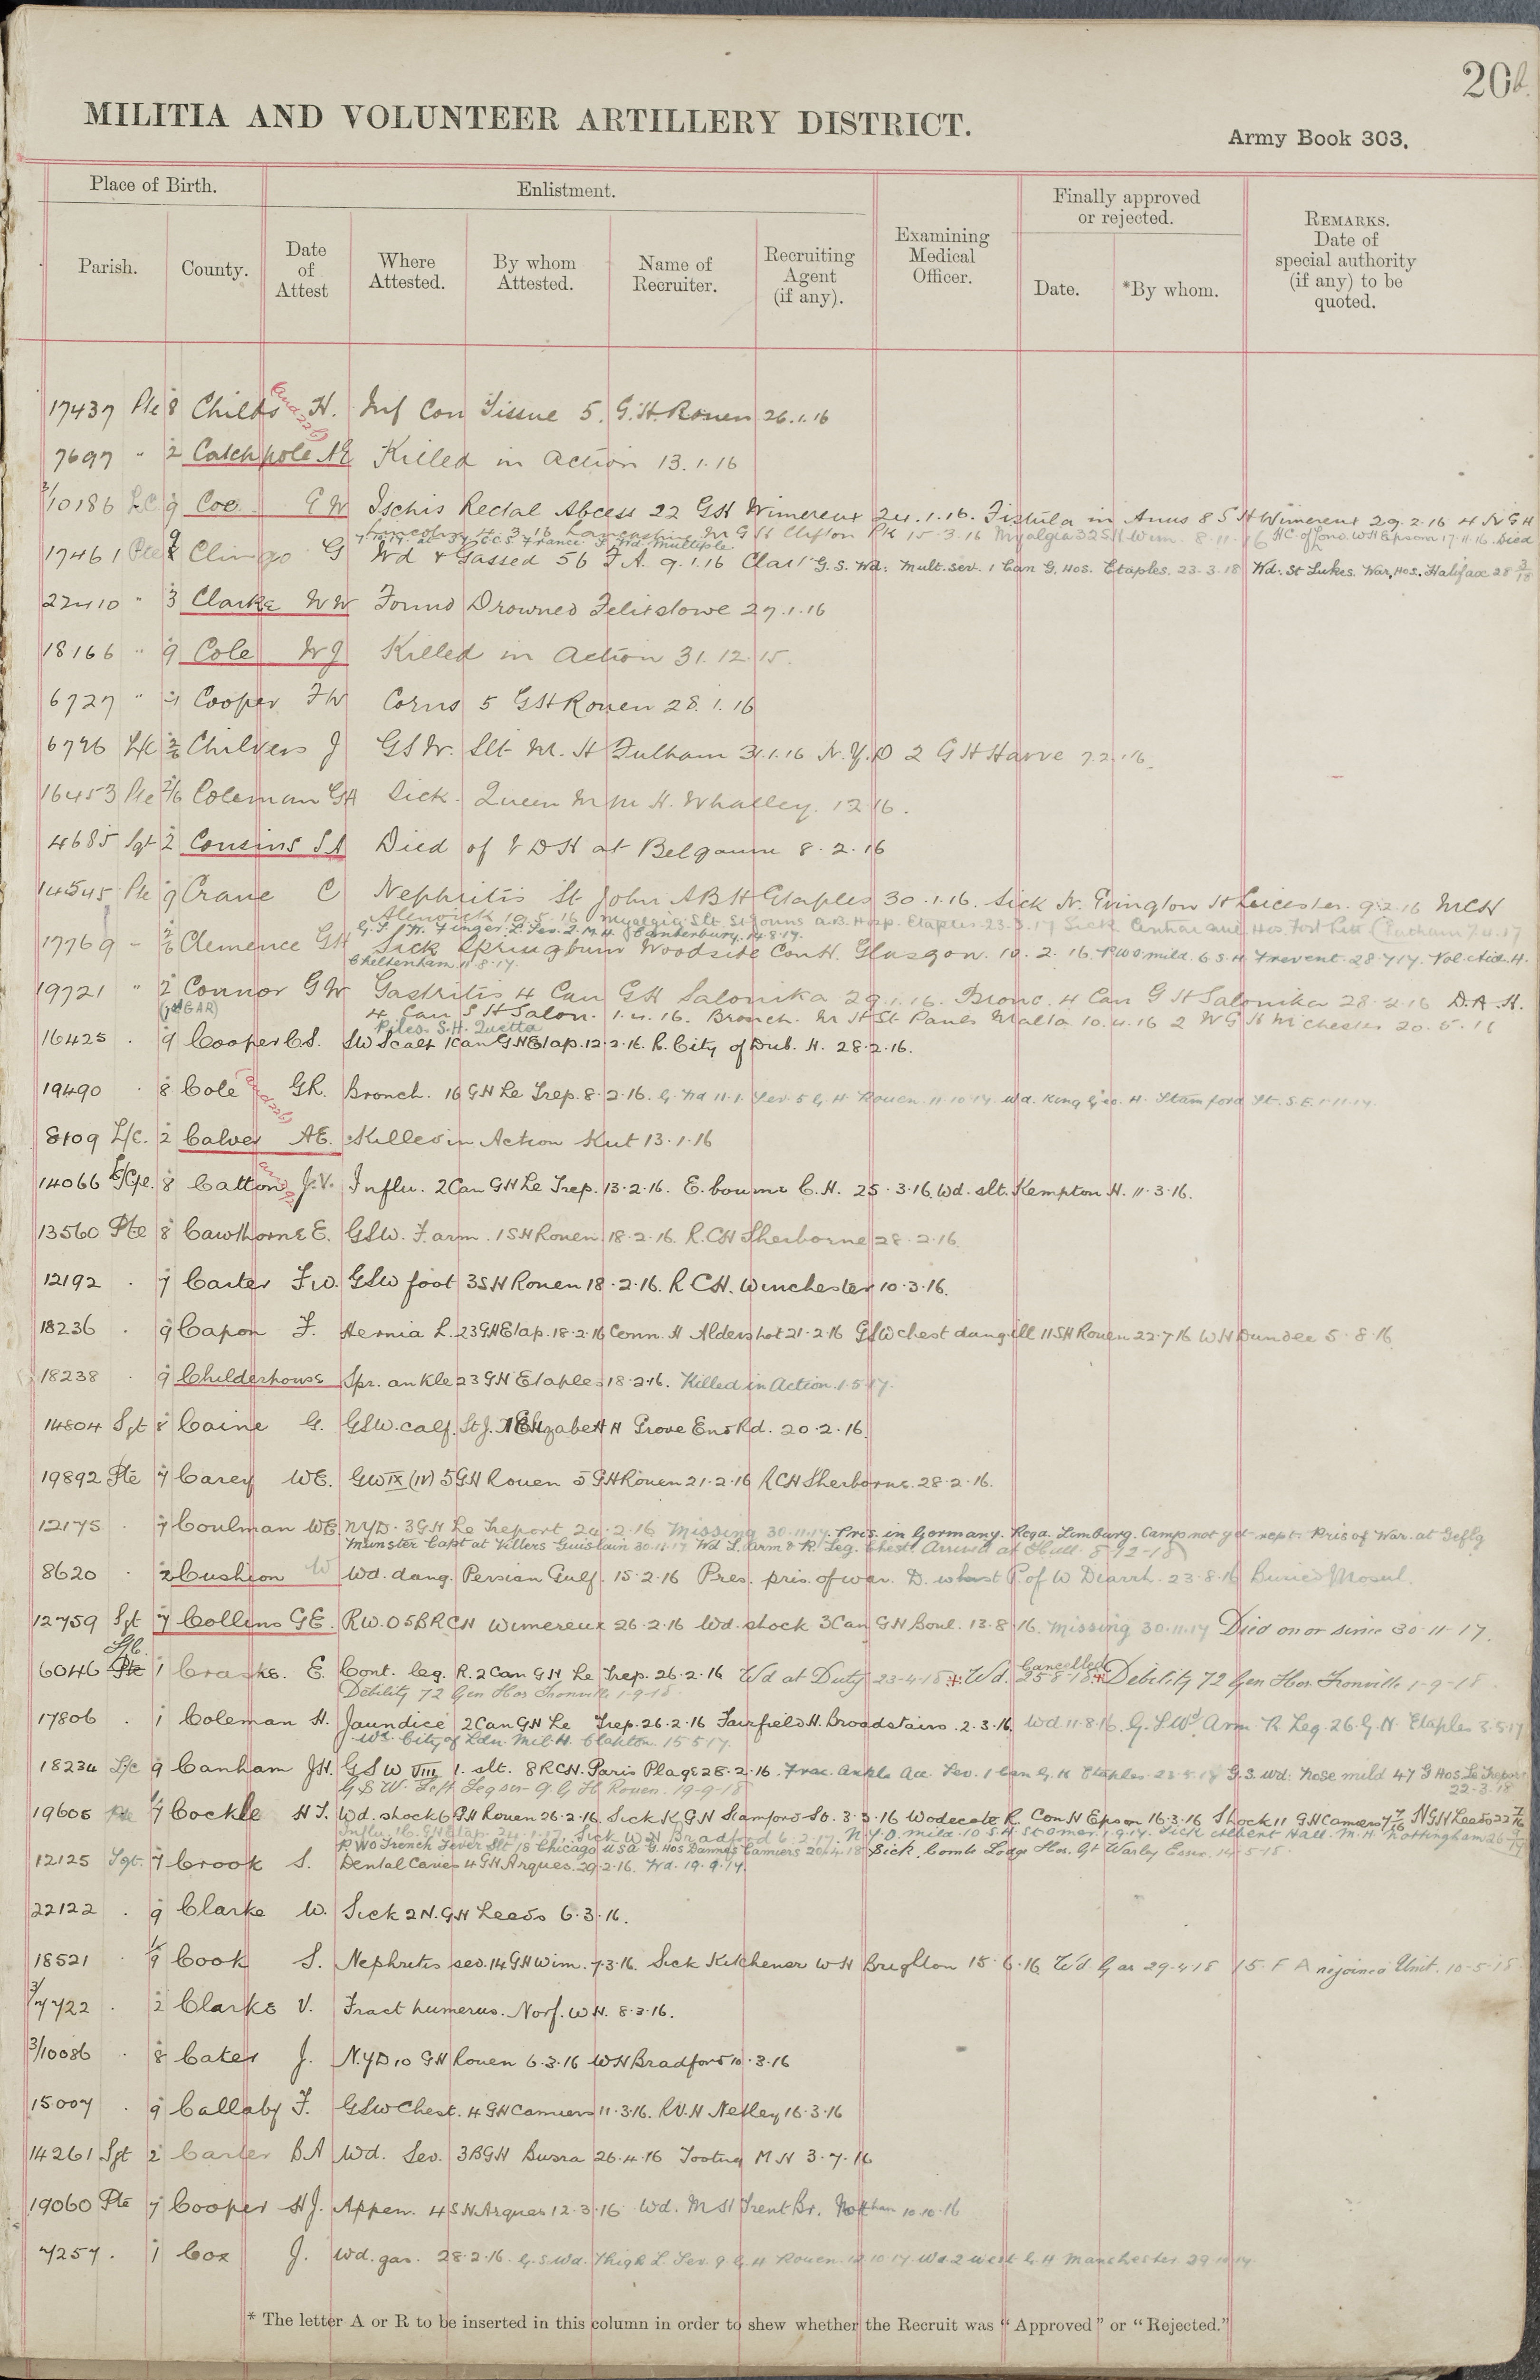 20b
MILITIA AND VOLUNTEER ARTILLERY DISTRICT.
Army Book 303.
Place of Birth.
Enlistment.
Finally approved or rejected.
Parish.
County.
Date of Attest
Where Attested.
By whom Attested.
Name of Recruiter.
Recruiting Agent (if any).
Examining Medical Officer.
Date.
*By whom.
REMARKS. Date of special authority (if any) to be quoted.
17437 Pte 8 Childs H. Inf Con Tissue 5. G.H. Rouen 26.1.16
7697 " 2 Catchpole A E Killed in Action 13.1.16
3/10186 LC 9 Coe G W Ischis Rectal Abcess 22 GH Wimereux 24.1.16. Fistula in Anus 8 S H Wimereux 29.2.16 4 N G H
17461 Pte 8 Clingo G Wd & Gassed 5b F.A. 9.1.16 G.S. Wd. Mult. sev. 1 Can G. Hos. Etaples. 23-3-18 Wd. St Lukes. War. Hos. Halifax 28 3/18
22410 " 3 Clarke W W Found Drowned Felixstowe 27.1.16
18166 " 9 Cole W J Killed in Action 31.12.15.
6727 " 1 Cooper F W Corns 5 GH Rouen 28.1.16
6796 L/C 2/6 Chilvers J GSW. Slt M.H Fulham 31.1.16 N.Y.D 2 G H Havre 7.2.16.
16453 Pte 2/6 Coleman GH Sick. Queen M M H. Whalley. 12 16.
4685 Sgt 2 Cousins S A Died of V D H at Belgaum 8.2.16
14545 Pte 9 Crane C Nephritis St John A B H Etaples 30.1.16. Sick N. Evington H Leicester. 9.2.16 MCH
Alnwick 19.5.16 Myalgia Slt St Johns A.B. Hosp. Etaples 23.3.17 Sick Central Mil Hos. Fort Pitt Chatham 7.4.17
G.S.W. Finger L. Sev. 2. M.H. Canterbury. 14.8.17.
17769 - 2/6 Clemence GH Sick Springburn Woodside Con H. Glasgow. 10.2.16. P W O mild. 6 S.H. Frevent. 28.7.17. Vol. Aid. H.
Cheltenham 11.8.17
19721 " 2 Connor G W Gastritis 4 Can GH Salonika 29.1.16. Bronc. 4 Can G H Salonika 28.2.16 D.A.H.
4 Can S H Salon. 1.4.16. Bronch. M H St Pauls Malta 10.4.16 2 W G H Mchester 20.5.16
Piles. S.H. Quetta
16425 . 9 Cooper C S. SW Scalp 1 Can GH Etap. 12.2.16. R. City of Dub. H. 28.2.16.
19490 . 8 Cole G R. Bronch. 16 GH Le Trep. 8.2.16. G. Wd 11.1. Sev. 5 G.H. Rouen. 11.10.17. Wd. King Geo. H. Stamford St. S.E. 1.11.17.
8109 L/C. 2 Calver A E. Killed in Action Kut 13.1.16
14066 L/Cpl. 8 Catton J.V. Influ. 2 Can GH Le Trep. 13.2.16. E.bourne C.H. 25.3.16. Wd. slt. Kempton H. 11.3.16.
13560 Pte 8 Cawthorne E. GSW. F.arm. 1 SH Rouen 18.2.16. R.C.H Sherborne 28.2.16.
12192 . 7 Carter F W. GSW foot 3 SH Rouen 18.2.16. R C H. Winchester 10.3.16.
18236 . 9 Capon F. Hernia L. 23 GH Etap. 18.2.16 Conn. H Aldershot 21.2.16 GSW chest dang. ill 11 SH Rouen 22.7.16 WH Dundee 5.8.16.
18238 . 9 Childerhouse Spr. ankle 23 GH Etaples 18.2.16. Killed in Action. 1.5.17.
14804 Sgt 8 Caine G. GSW. calf. St J. Elizabeth H Grove End Rd. 20.2.16.
19892 Pte 7 Carey W E. GW IX (IV) 5 GH Rouen 5 GH Rouen 21.2.16 RCH Sherborne. 28.2.16.
12175 . 7 Coulman W E. NYD. 3 GH Le Treport 24.2.16 Missing 30.11.17. Pris. in Germany. Regd. Limburg. Camp not yet rept. Pris of War. at Geflg
Munster Capt at Villers Guislain 30.11.17 Wd L. Arm & R. Leg. Chest. Arrived at Hull. 8-12-18
8620 . 2 Cushion W Wd. dang. Persian Gulf. 15.2.16 Pres. pris. of war. D. whilst P. of W Diarrh. 23.8.16 Buried Mosul.
12759 Sgt 7 Collins G E. RW. O 5 BRCH Wimereux 26.2.16 Wd. shock 3 Can GH Boul. 13.8.16. Missing 30.11.17 Died on or since 30-11-17.
6046 L/C. Pte 1 Craske. E. Cont. leg. R. 2 Can GH Le Trep. 26.2.16 Wd at Duty 23-4-18 + Wd. Cancelled 25-8-18 + Debility 72 Gen Hos. Tronville 1-9-18
Debility 72 Gen Hos Tronville 1-9-18
17806 . 1 Coleman H. Jaundice 2 Can GH Le Trep. 26.2.16 Fairfield H. Broadstairs. 2.3.16. Wd 11.8.16 G.S.Wd. Arm R Leg. 26. G.H. Etaples 3.5.17
Wd. City of Ldn. Mil. H. Clapton. 15.5.17.
18234 L/C 9 Canham J H. GSW VIII 1. slt. 8 RCH. Paris Plage 28.2.16. Frac. Ankle Acc. Sev. 1 Can G.H Etaples. 23.5.17 G.S. Wd. Nose mild 47 G Hos Le Treport 22-3-18
G S W. Left Leg sev 9 G H Rouen. 19-9-18
19605 Pte 7 Cockle H T. Wd. shock 6 GH Rouen 26.2.16. Sick K G H Stamford St. 3.3.16 Wodecote R Con H Epsom 16.3.16 Shock 11 GH Camiers 7/16 N GH Leeds 22 7/16
Influ. 16. GH Etap. 24.1.17. Sick W H Bradford 6.2.17. N.Y.D. mild. 10 S.H. St Omer. 1.9.17. Sick Albert Hall. M.H. Nottingham 26
P W O Trench Fever Slt 18 Chicago USA G Hos Dannes Camiers 20.4.18 Sick. Combe Lodge Hos. Gt Warley Essex. 14.5.18.
12125 Sgt. 7 Crook S. Dental Caries 4 GH Arques. 29.2.16. Wd. 19.9.17.
22122 . 9 Clarke W. Sick 2 N. GH Leeds 6.3.16.
18521 . 1/9 Cook S. Nephritis sev. 14 GH Wim. 7.3.16. Sick Kitchener WH Brighton 15.6.16 Wd Gas 29.4.18 15. F A rejoined Unit. 10-5-18
3/7722 . 2 Clarke V. Fract humerus. Norf. W H. 8.3.16.
3/10086 . 8 Cates J. N.Y.D 10 GH Rouen 6.3.16 WH Bradford 10.3.16
15007 . 9 Callaby F. GSW Chest. 4 GH Camiers 11.3.16. RV.H Netley 16.3.16
14261 Sgt 2 Carter B A Wd. Sev. 3 BGH Busra 26.4.16 Tooting M H 3.7.16
19060 Pte 7 Cooper H J. Appen. 4 SH Arques 12.3.16 Wd. M H Trent Br. Nottham 10.10.16
7257 . 1 Cox J. Wd. gas. 28.2.16. G.S Wd. Thigh L. Sev. 9 G.H Rouen. 12.10.17 Wd. 2 West G.H Manchester 29.10.17.
* The letter A or R to be inserted in this column in order to shew whether the Recruit was "Approved" or "Rejected."